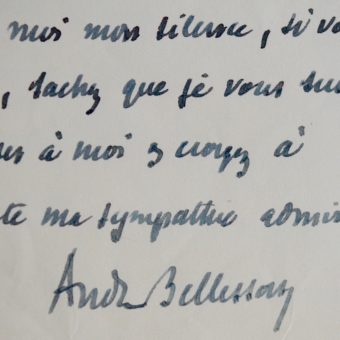 moi mon silence, si vo
, sachez que je vous su
us à moi & croyez à
te ma sympathie admir
André Bellessort